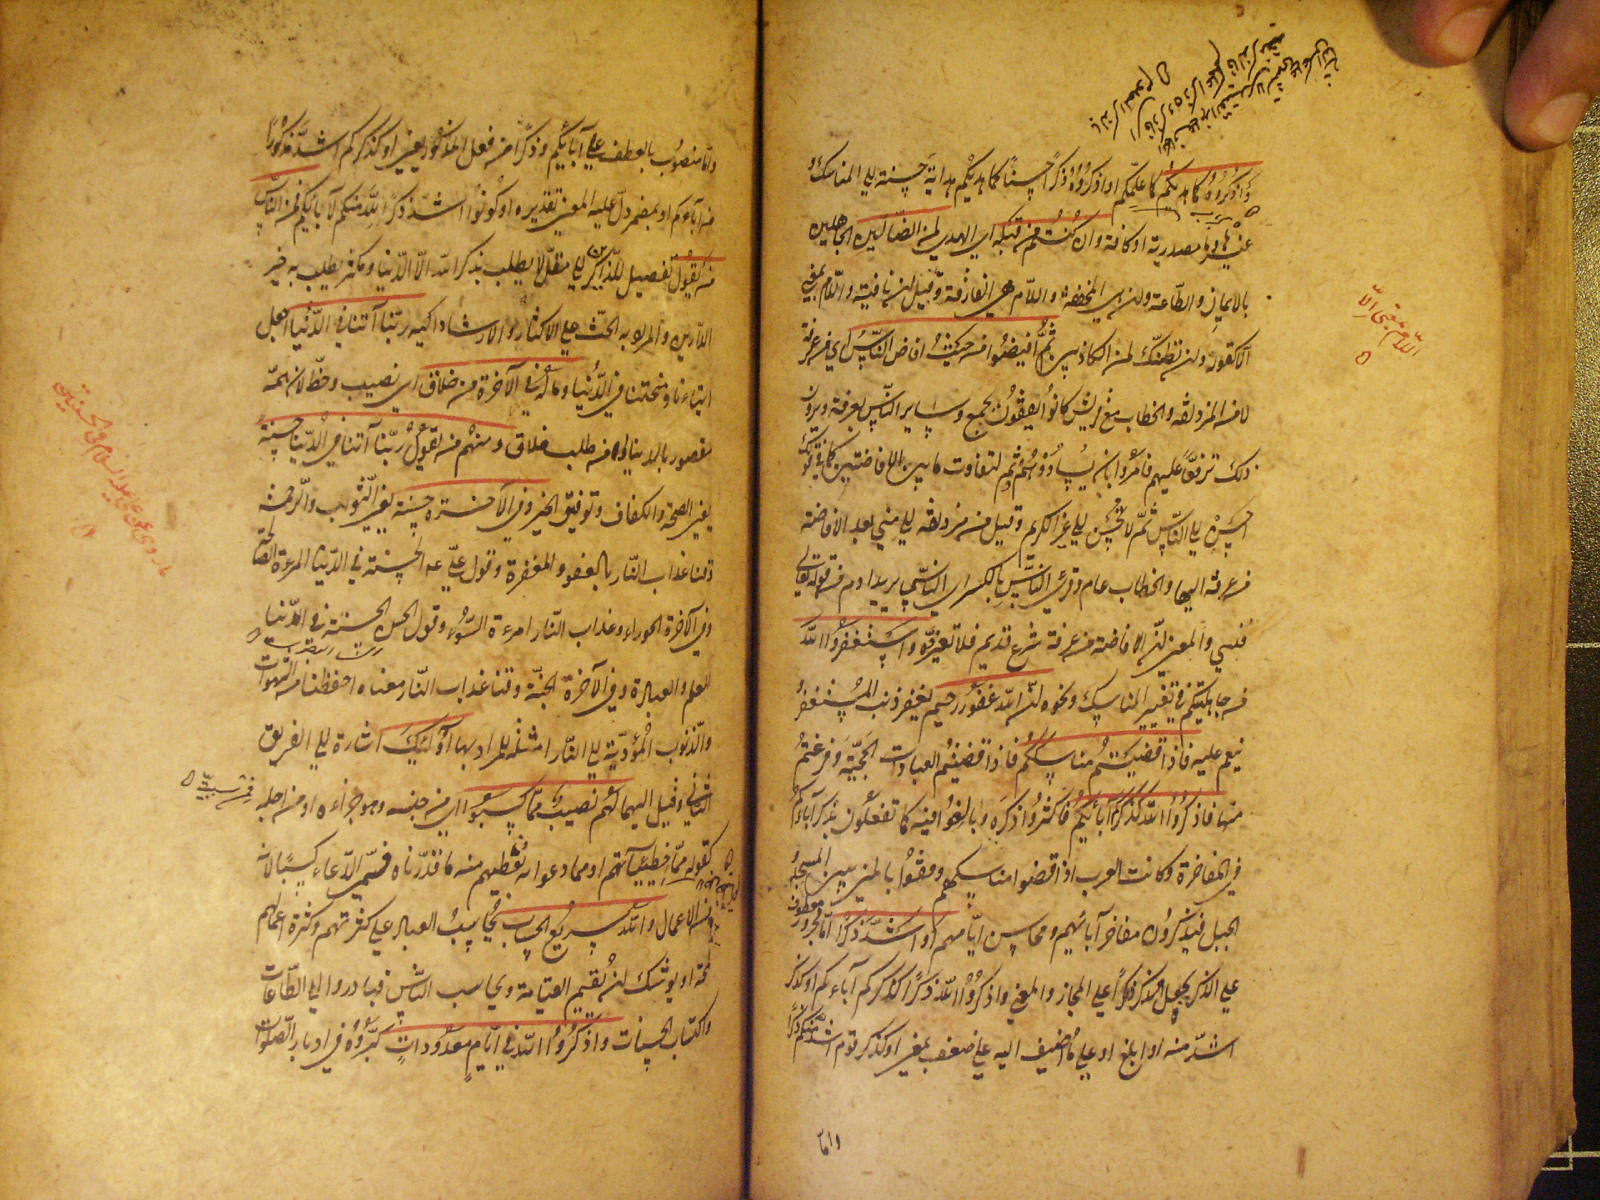 وَاذْكُرُوهُ كما هديكم كما علمكم او اذكروه ذكرا حسنا كما هديكم هداية حسنة الى المناسك و
غيرها وما مصدرية او كافة وان كنتم من قبله اى الهدى لمن الضالين الجاهلين
بالايمان والطاعة وان هى المخففة واللام هى الفارقة وقيل ان نافية واللام بمعنى
الا كقوله وان نظنك لمن الكاذبين ثم افيضوا من حيث افاض الناس اى من عرفة
لا من المزدلفة والخطاب مع قريش كانوا يقفون بجمع وساير الناس بعرفة ويرون
ذلك ترفعا عليهم فامروا بان يساووهم وثم لتفاوت ما بين الافاضتين كما فى قولك
احسن الى الناس ثم لا تحسن الى غير الكريم وقيل من مزدلفة الى منى بعد الافاضة
من عرفة اليها والخطاب عام وقرئ الناس بالكسر اى الناسى يريد ادم من قوله تعالى
فنسى والمعنى ان الافاضة من عرفة شرع قديم فلا تغيروه واستغفروا الله
من جاهليتكم فى تغيير المناسك ونحوه ان الله غفور رحيم يغفر ذنب المستغفر
وينعم عليه فاذا قضيتم مناسككم فاذا قضيتم العبادات الحجية وفرغتم
منها فاذكروا الله كذكركم آباءكم فاكثروا ذكره وبالغوا فيه كما تفعلون بذكر آباءكم
فى المفاخرة وكانت العرب اذا قضوا مناسكهم وقفوا بالمنى بين المسجد و
الجبل فيذكرون مفاخر آبائهم ومحاسن ايامهم او اشد ذكرا اما مجرور معطوف
على الذكر بجعل الذكر ذاكرا على المجاز والمعنى واذكروا الله ذكرا كذكركم آباءكم او كذكر
اشد منه او ابلغ او على ما اضيف اليه على ضعف بمعنى او كذكر قوم اشد منكم ذكرا
واما
اللام بمعنى الا
واما منصوب بالعطف على آبائكم وذكرا من فعل المذكور بمعنى او كذكركم اشد مذكورا
من آبائكم او بمضمر دل عليه المعنى تقديره او كونوا اشد ذكرا لله منكم لآبائكم فمن الناس
من يقول تفصيل للذاكرين الى مقل لا يطلب بذكر الله الا الدنيا ومكثر يطلب به خير
الدارين والمراد به الحث على الاكثار والارشاد اليه ربنا آتنا فى الدنيا اجعل
ايتاءنا ومنحتنا فى الدنيا وما له فى الآخرة من خلاق اى نصيب وحظ لان همه
مقصور بالدنيا او من طلب خلاق ومنهم من يقول ربنا آتنا فى الدنيا حسنة
يعنى الصحة والكفاف وتوفيق الخير وفى الآخرة حسنة يعنى الثواب والرحمة
وقنا عذاب النار بالعفو والمغفرة وقول على عه الحسنة فى الدنيا المرءة الصالحة
وفى الآخرة الحوراء وعذاب النار امرءة السوء وقول الحسن الحسنة فى الدنيا
العلم والعبادة وفى الآخرة الجنة وقنا عذاب النار معناه احفظنا من الشهوات
والذنوب المؤدية الى النار امثلة للمراد بها اولئك اشارة الى الفريق
الثانى وقيل اليهما لهم نصيب مما كسبوا اى من جنسه وهو جزاءه او من اجله
كقوله مما خطيئاتهم او مما دعوا به نعطيهم منه ما قدرناه فسمى الدعاء كسبا لانه
من الاعمال والله سريع الحساب يحاسب العباد على كثرتهم وكثرة اعمالهم
لمحة او يوشك ان يقيم القيامة ويحاسب الناس فبادروا الى الطاعات
واكتساب الحسنات واذكروا الله فى ايام معدودات كبروه فى ادبار الصلوات
من سببية